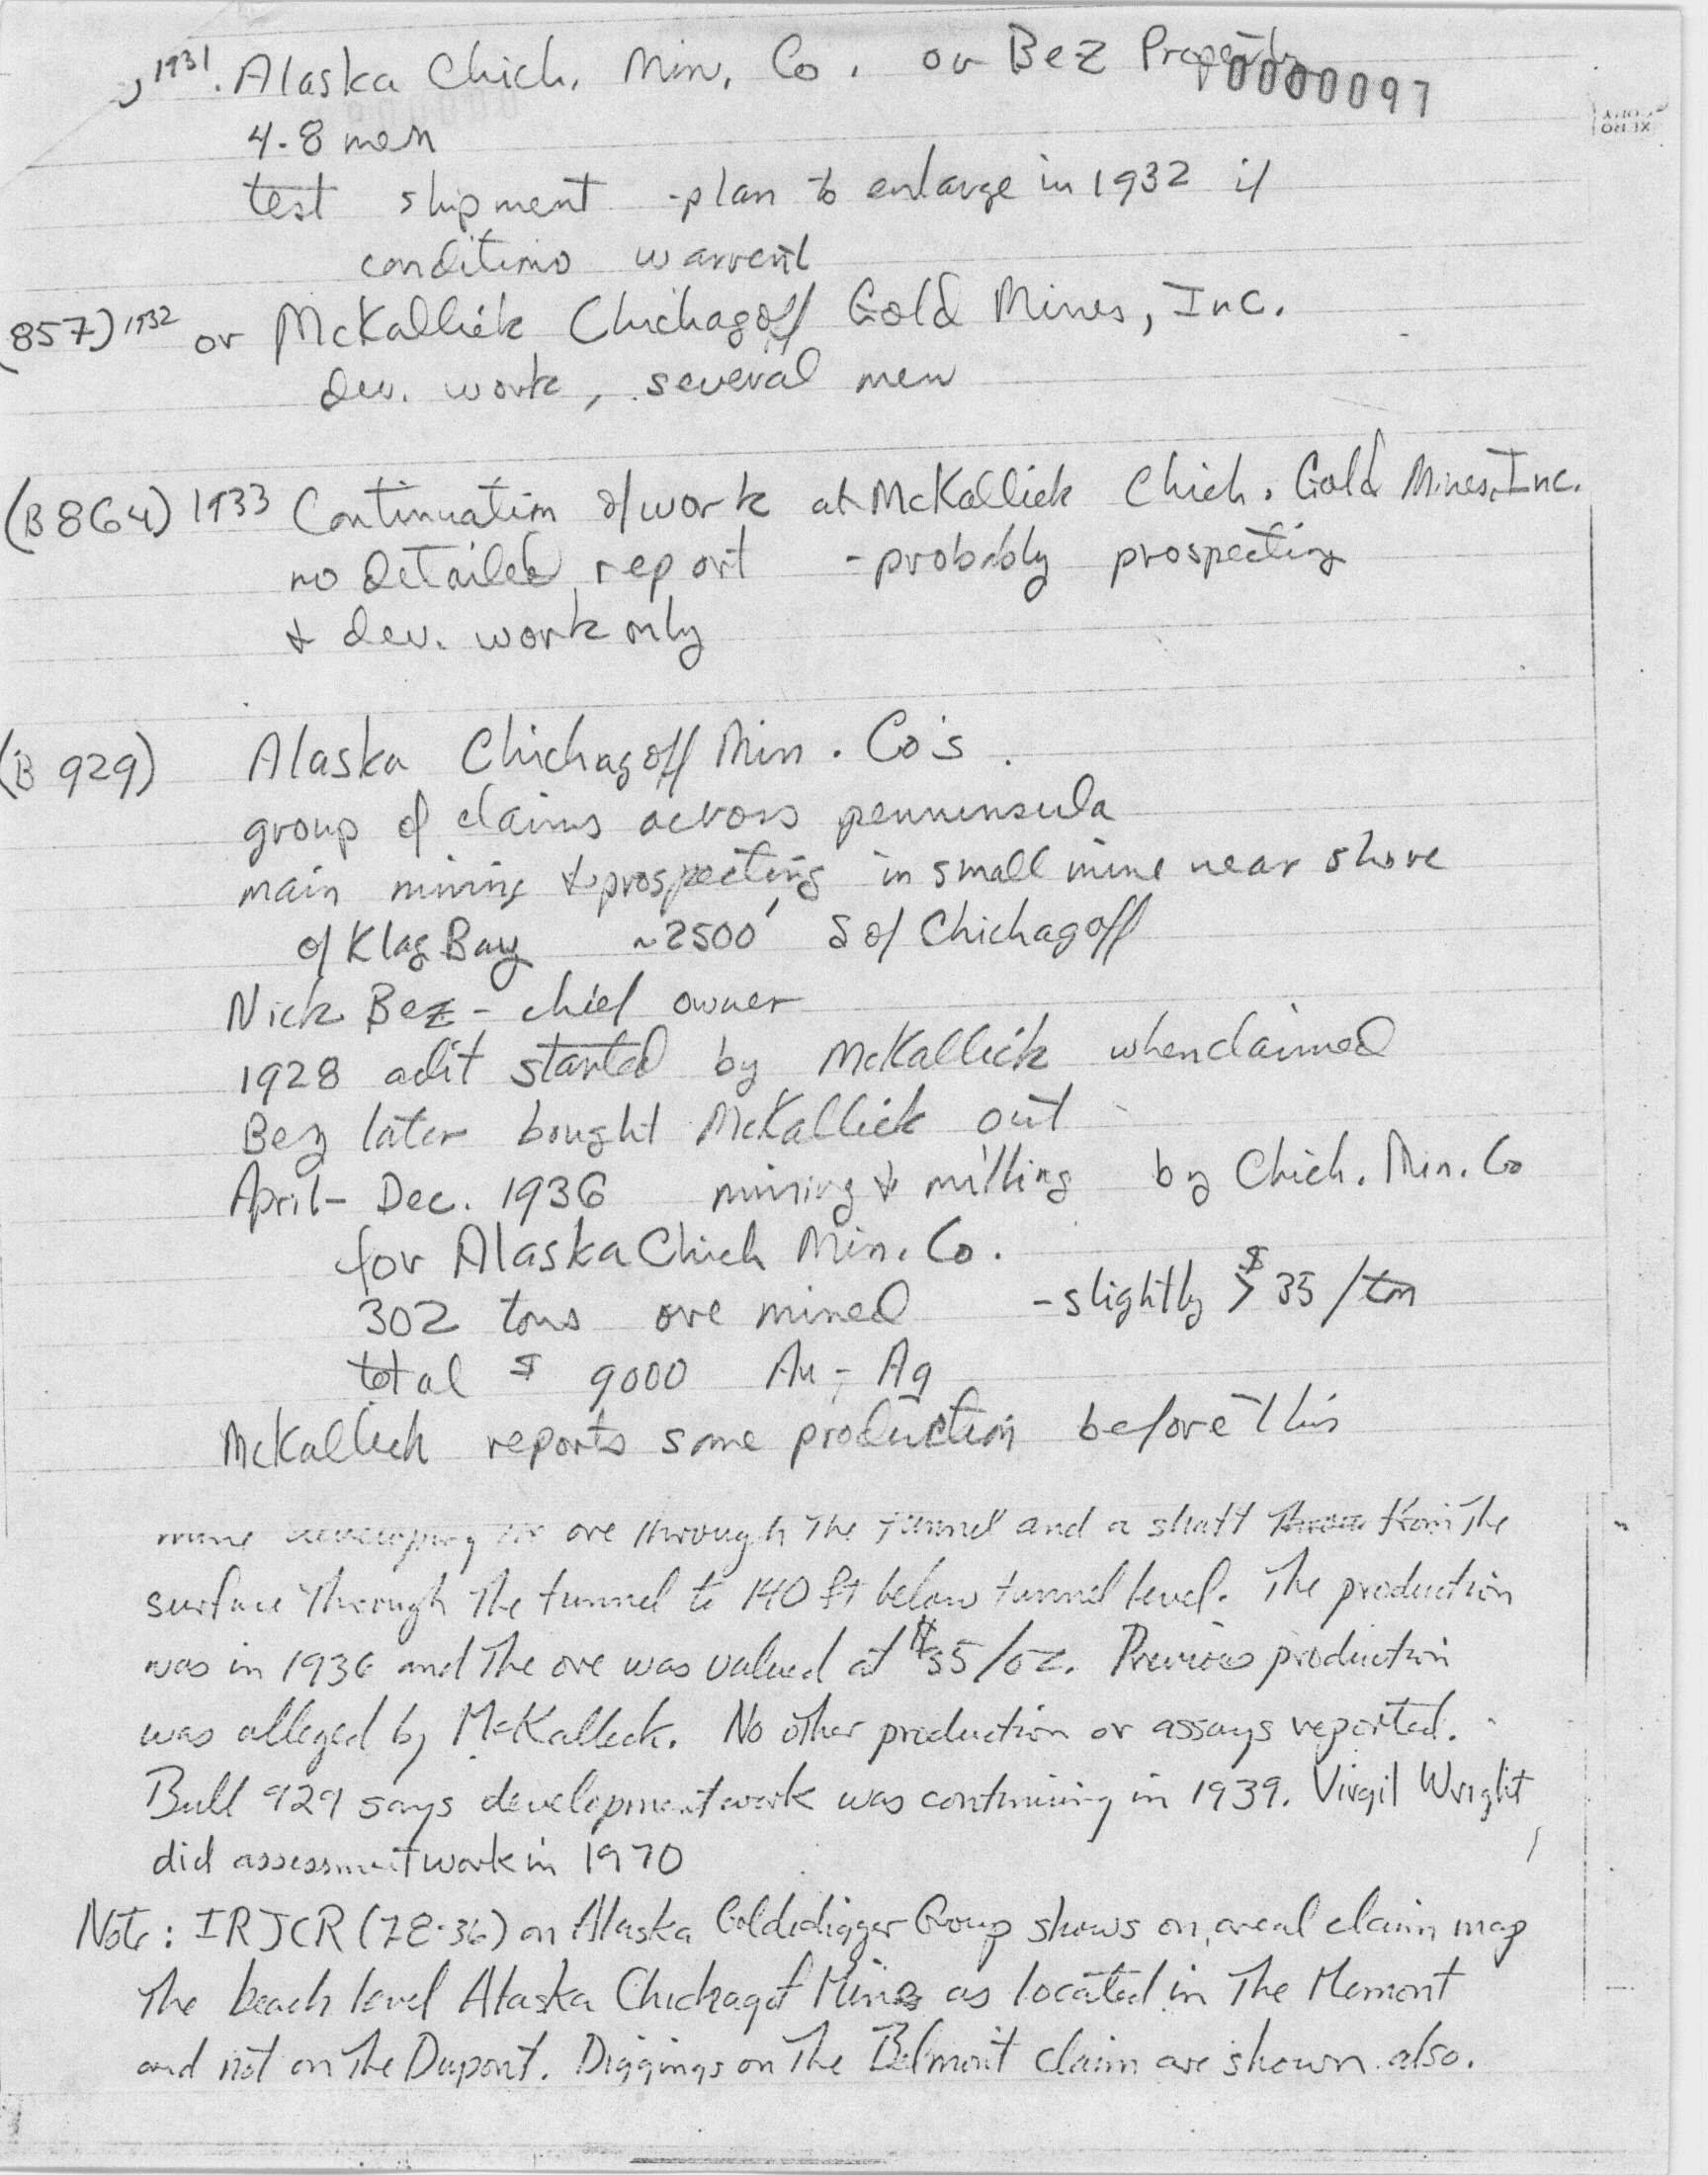 1931. Alaska Chich. Min. Co. or Bez Property
0000097
4-8 men
test shipment - plan to enlarge in 1932 if
conditions warrent
(857) 1932 or McKallick Chichagoff Gold Mines, Inc.
dev. work, several men
(B 864) 1933 Continuation of work at McKallick Chich. Gold Mines, Inc.
no detailed report - probably prospecting
& dev. work only
(B 929) Alaska Chichagoff Min. Co's.
group of claims across penninsula
main mining & prospecting in small mine near shore
of Klag Bay ~2500' S of Chichagoff
Nick Bez - chief owner
1928 adit started by McKallick when claimed
Bez later bought McKallick out
April - Dec. 1936 mining & milling by Chich. Min. Co
for Alaska Chich Min. Co.
302 tons ore mined - slightly > $35/ton
total $ 9000 Au - Ag
McKallick reports some production before this
mine developing the ore through the tunnel and a shaft from the
surface through the tunnel to 140 ft below tunnel level. The production
was in 1936 and the ore was valued at $35/oz. Previous production
was alleged by McKalleck. No other production or assays reported.
Bull 929 says development work was continuing in 1939. Virgil Wright
did assessment work in 1970
Note: IRJCR (78-36) on Alaska Golddigger Group shows on areal claim map
the beach level Alaska Chichagof Mine as located in the Memont
and not on the Dupont. Diggings on the Belmont claim are shown also.